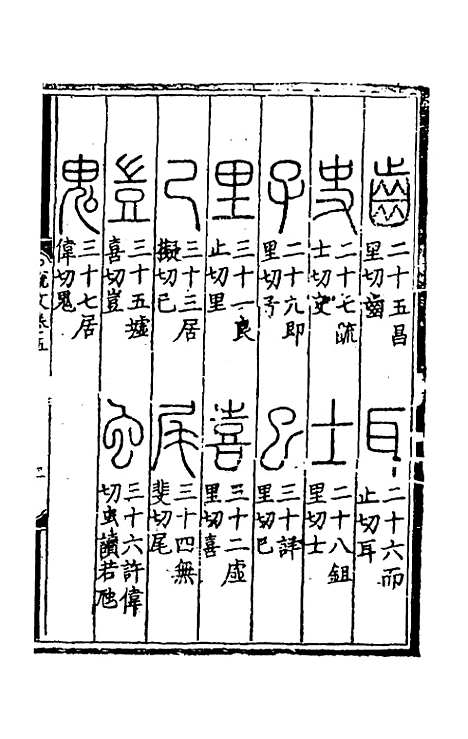 齒
二十五昌
里切齒
耳
二十六而
止切耳
史
二十七疏
士切史
士
二十八鉏
里切士
子
二十九即
里切子
巳
三十詳
里切巳
里
三十一良
止切里
喜
三十二虛
里切喜
己
三十三居
擬切己
尾
三十四無
斐切尾
豈
三十五墟
喜切豈
虫
三十六許偉
切虫讀若虺
鬼
三十七居
偉切鬼
說文卷五